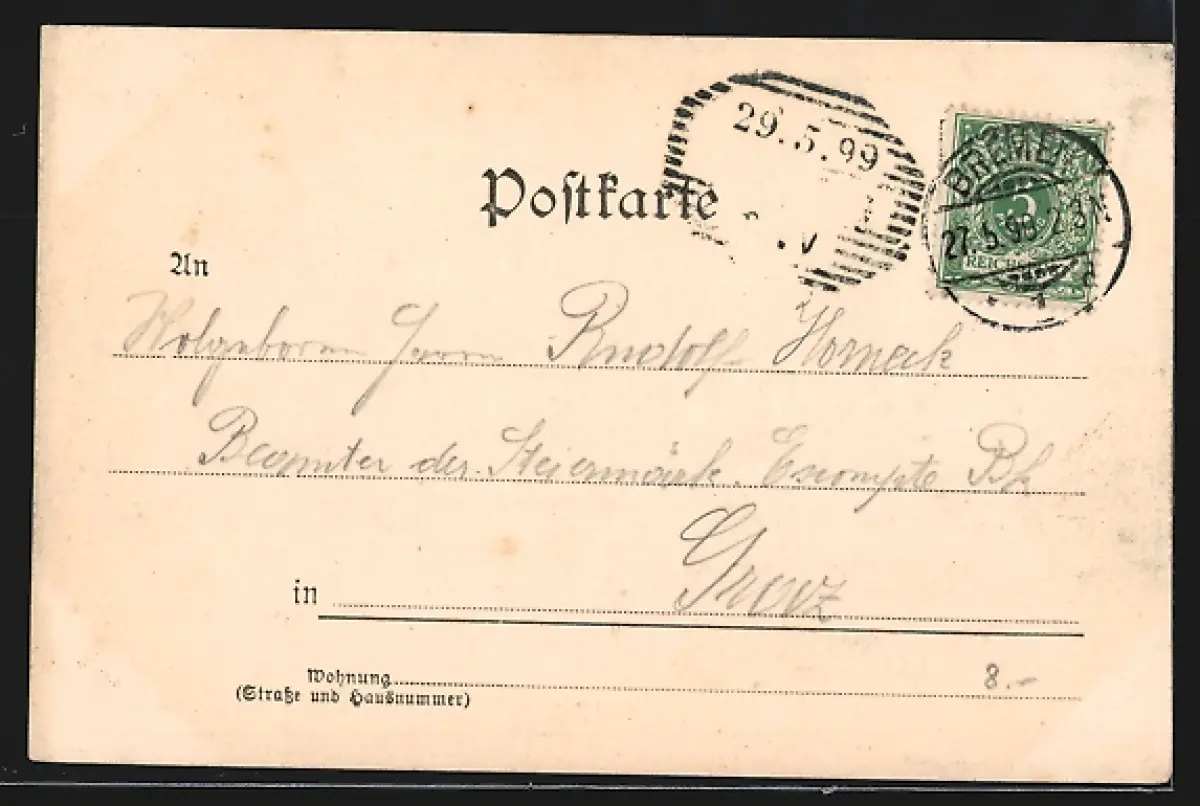 29.5.99
BREMEN
27.5.99. 2-3N.
5
REICHSPOST
Postkarte
An
Wolgeboren Herrn Rudolf Horneck
Beamter der Steiermärk. Escompte Bk
in Graz
Wohnung
(Straße und Hausnummer)
8.-